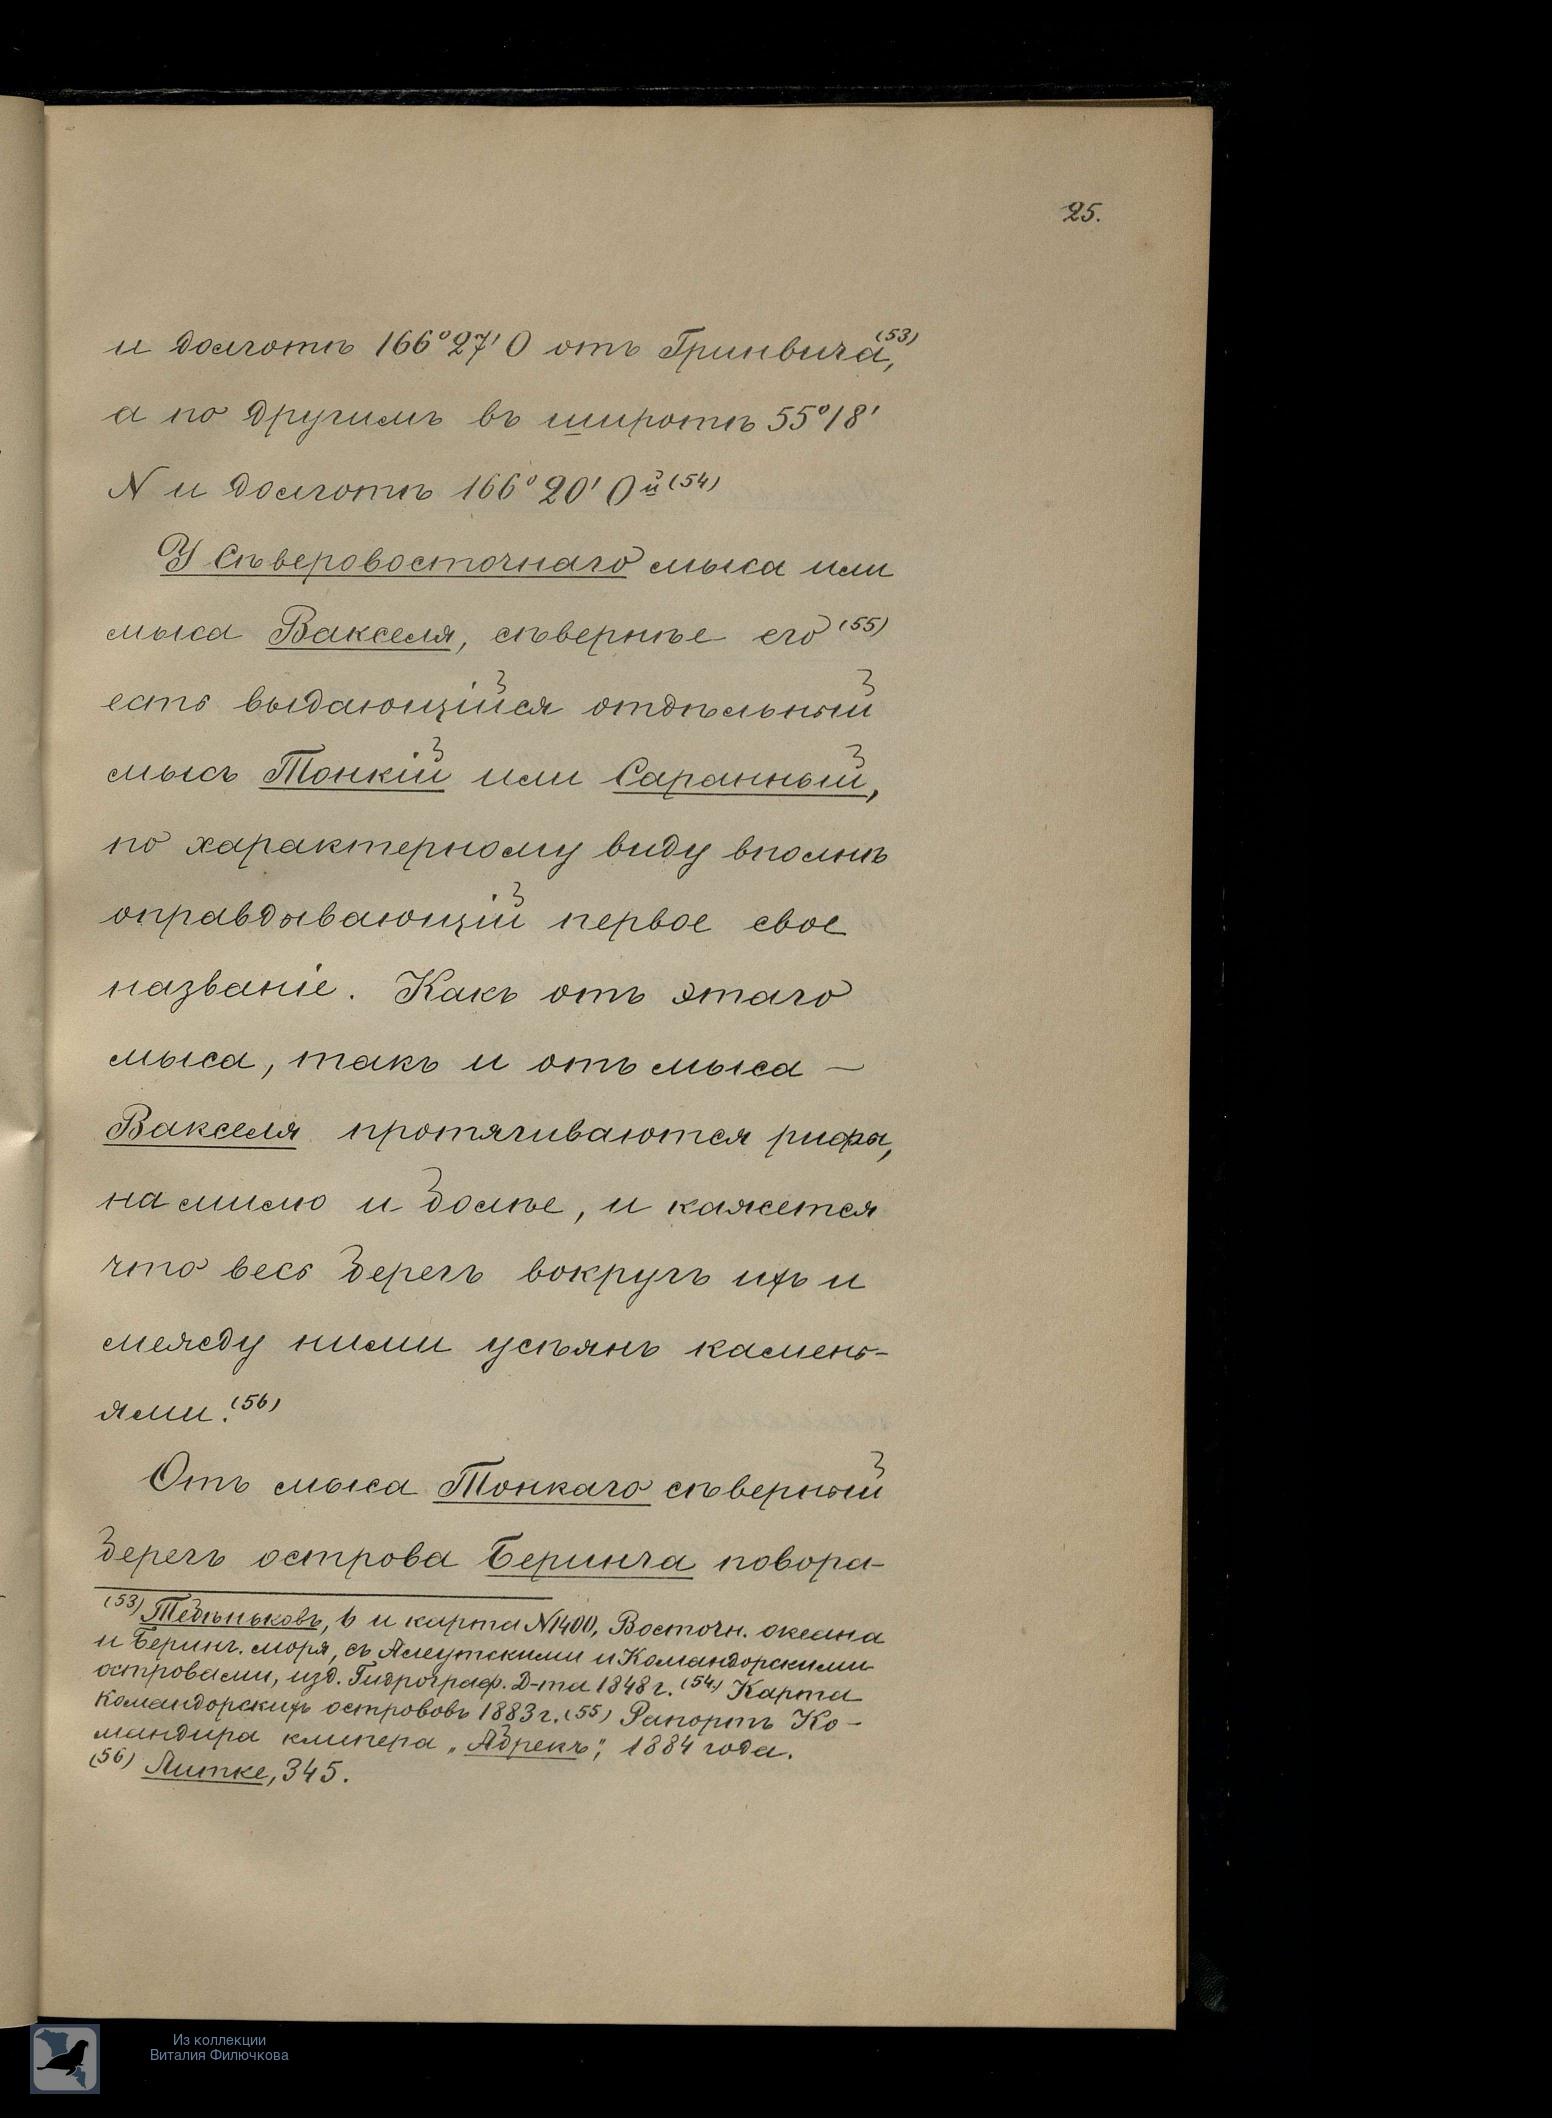 25.
и долготѣ 166°27' O отъ Гринвича,(53)
а по другимъ въ широтѣ 55°18'
N и долготѣ 166°20' Oй (54)
У Сѣверовосточнаго мыса или
мыса Вакселя, сѣвернѣе его (55)
есть выдающійся отдѣльный
мысъ Тонкій или Саранный,
по характерному виду вполнѣ
оправдывающій первое свое
названіе. Какъ отъ этаго
мыса, такъ и отъ мыса —
Вакселя протягиваются рифы,
на милю и болѣе, и кажется
что весь берегъ вокругъ ихъ и
между ними усѣянъ камень-
ями.(56)
Отъ мыса Тонкаго сѣверный
берегъ острова Беринга повора-
(53) Тебѣньковъ, 6 и карта N1400, Восточн. океана
и Беринг. моря, съ Алеутскими и Командорскими
островами, изд. Гидрограф. Д-та 1848 г. (54) Карта
Командорскихъ острововъ 1883 г. (55) Рапортъ Ко-
мандира клипера „Абрекъ", 1884 года.
(56) Литке, 345.
Из коллекции
Виталия Филючкова